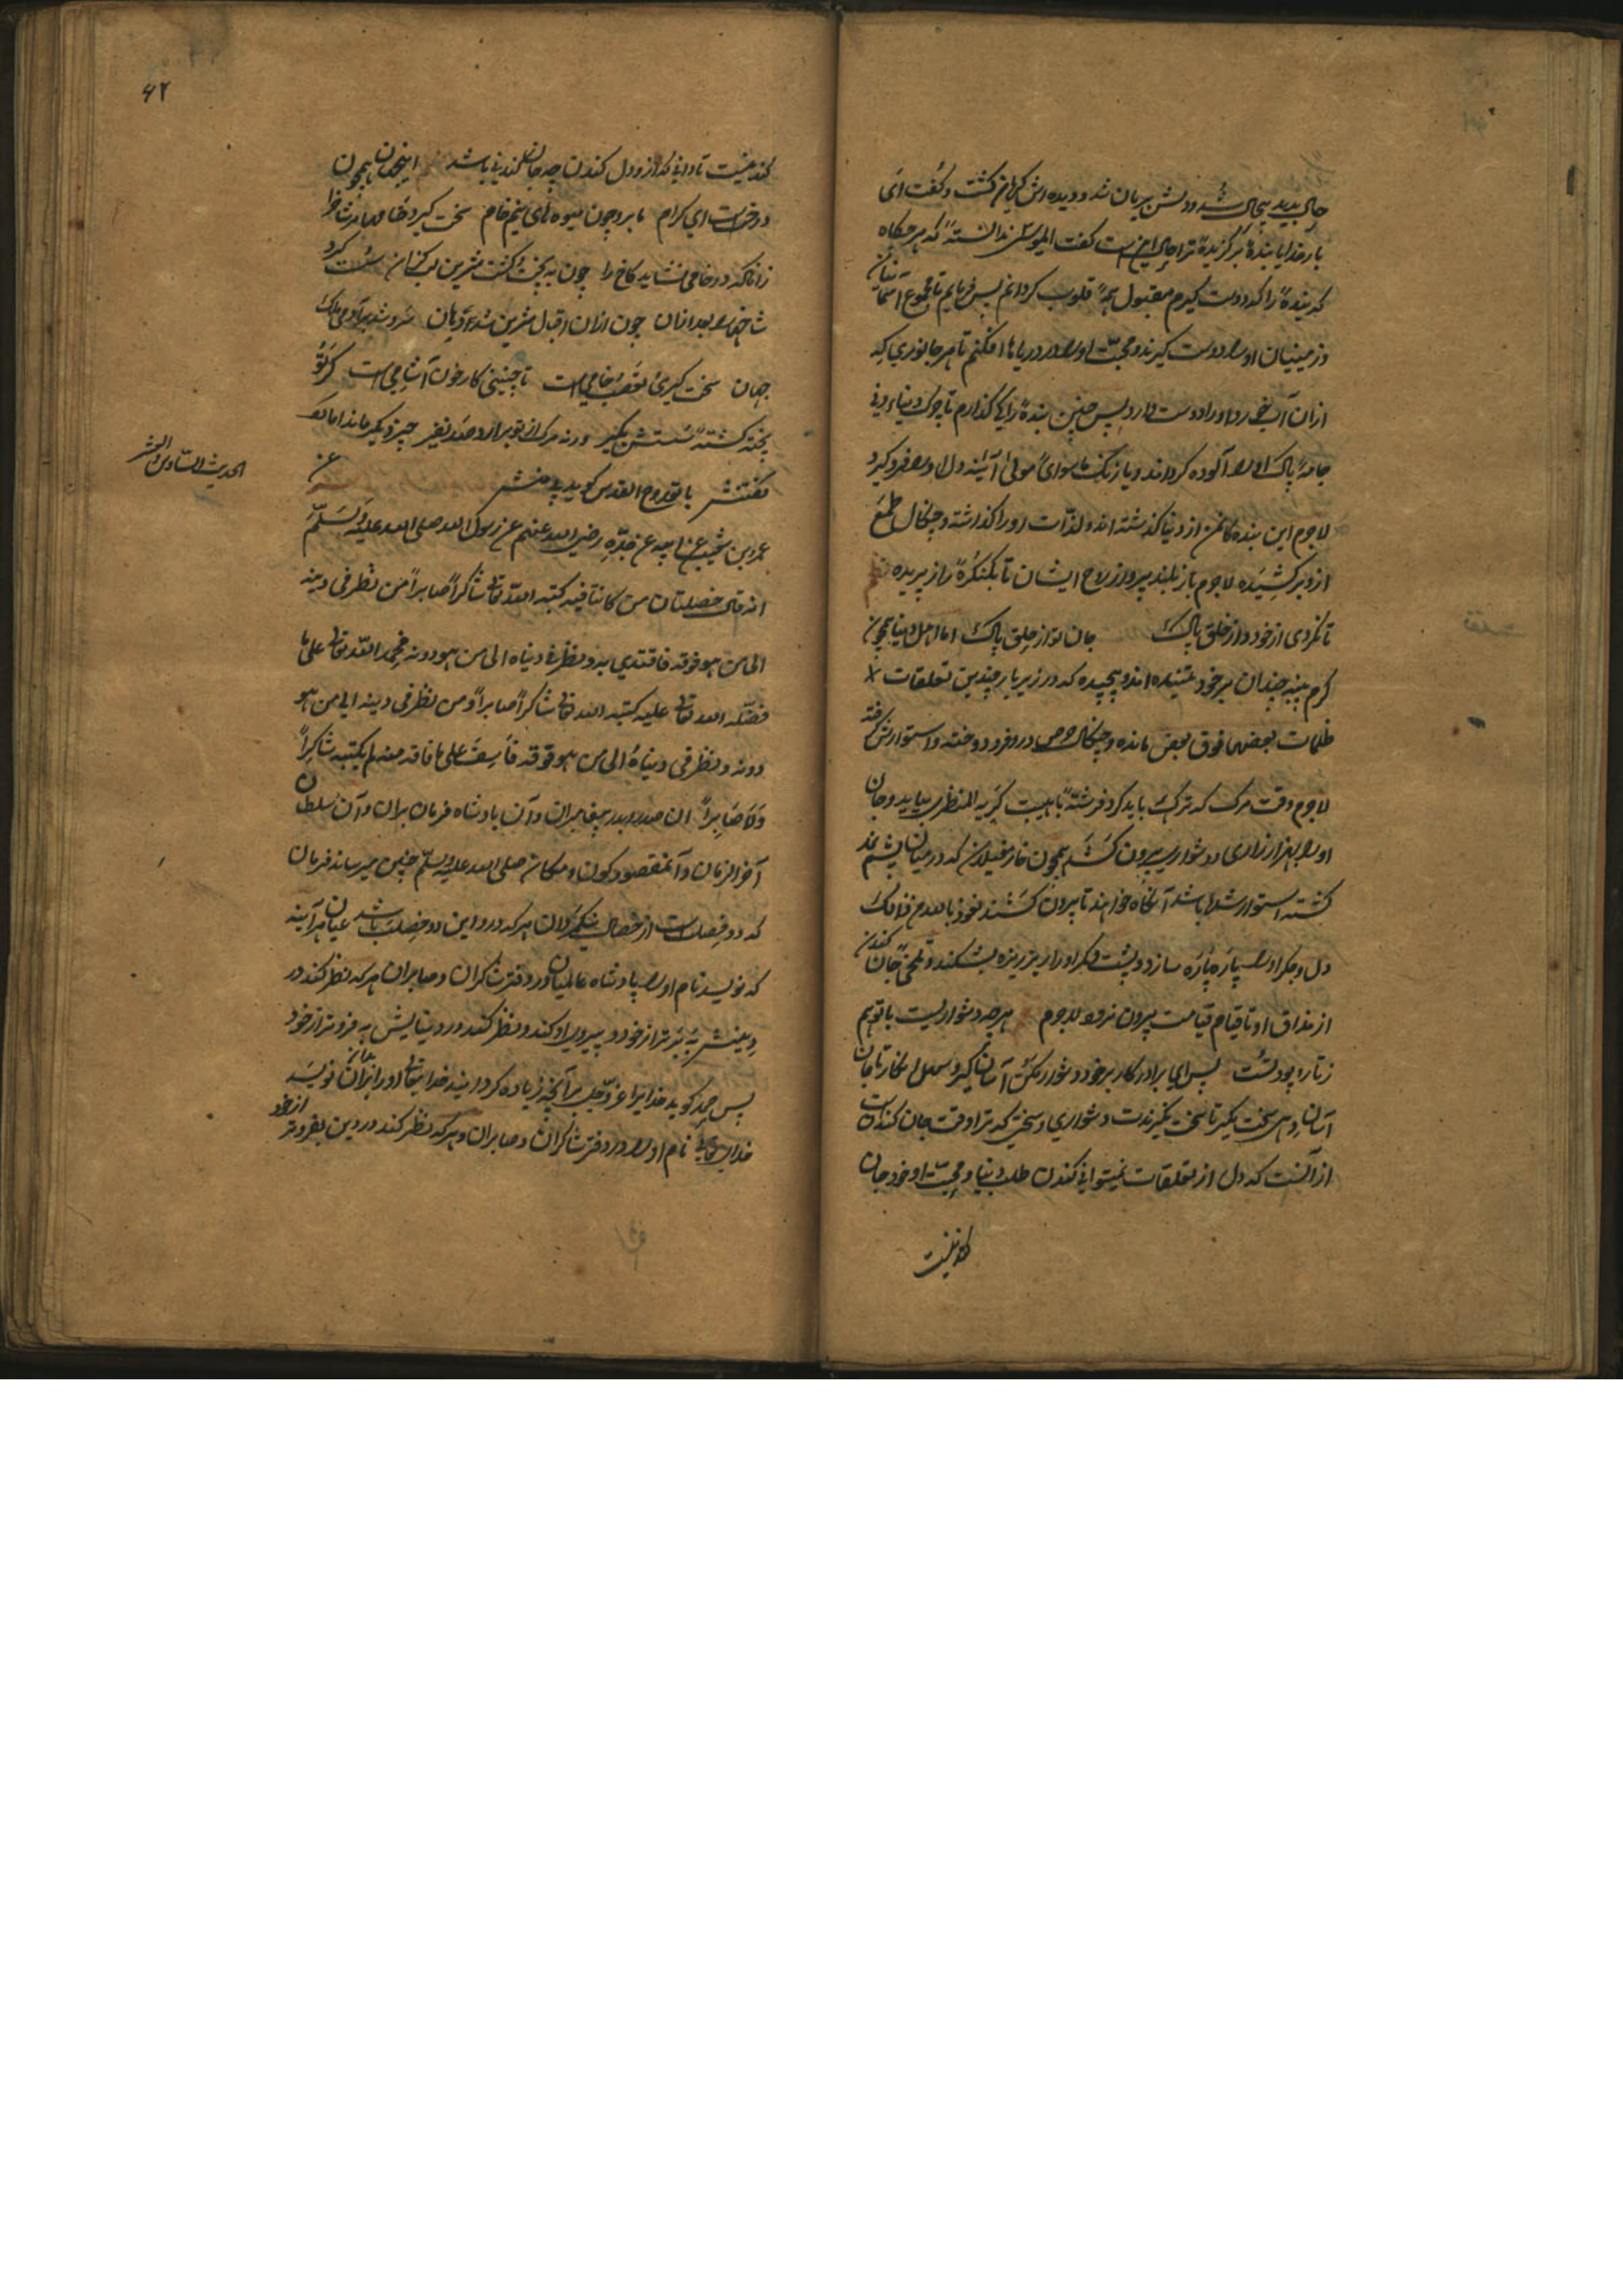 حال بدید بیحال شد و دلش بریان شد و دیده اش گریان گشت و گفت ای
بار خدایا بندهٔ برگزیدهٔ ترا حال این است گفت ای موسی ندانستهٔ که هرگاه
که بندهٔ را که دوست گیرم مقبول همهٔ قلوب گردانم پس فرمایم تا مجموع آسمانیان
و زمینیان او را دوست گیرند و محبت او را در دریاها افکنم تا هر جانوری که
ازان آب خورد او را دوست دارد پس چنین بندهٔ را کی گذارم تا چرک دنیاء دنی
جامهٔ پاک او را آلوده گرداند و یا زنگ ماسوای مولی آئینه دل او را فرو گیرد
لاجرم این بنده کان من از دنیا گذشته اند و لذّات او را گذاشته و چنگال طمع
ازو برکشیده لاجرم باز بلند پرواز روح ایشان تا بکنگرهٔ راز پریده
تا نگردی از خود و از خلق پاک جان تو از خلق پاک اما اهل دنیا همچون
کرم پیله چندان بر خود تنیده اند و پیچیده که در زیر بار چندین تعلقات
ظلمات بعضها فوق بعض مانده و چنگال حرص درو فرو دوخته و استوارش گرفته
لاجرم وقت مرگ که ترک باید کرد فرشتهٔ با هیبت کریه المنظر بیاید و جان
او را بهزار زاری و دشواری بیرون کشد همچون خار مغیلان که در میان پشم
گشته استوار شده باشد آنگاه خواهند تا بیرون کشند نعوذ بالله من ذالک
دل و جگر او را پاره پاره سازد و پشت و کمر او را ریزریزه بشکند و تلخی جان کندن
از مذاق او تا قیام قیامت بیرون نرود لاجرم هر چه دشواریست با تو هم
ز تار و پود تست پس ای برادر کار بر خود دشوار مکن آسان گیر و سهل انگار تا جان
آسان دهی سخت مگیر تا سخت نگیرندت دشواری و سختی که ترا وقت جان کندنست
از آنست که دل از تعلقات نمیتوانی کندن طلب دنیا و محبت او خود جان
کندنیست
۶۲
کندنیست تا دانی که ازو دل کندن چه جان کندنی باشد اینجهان همچون
درختست ای کرام ما برو چون میوه های نیم خام سخت گیرد خامها مر شاخ را
زانکه در خامی نشاید کاخ را چون بپخت و گشت شیرین لب گزان سست گیرد
شاخها را بعد ازان چون ازان اقبال شیرین شد دهان سرد شد بر آدمی ملک
جهان سخت گیری و تعصب خامی است تا جنینی کار خون آشامی است گر تو
پخته گشتهٔ سستش بگیر چیز دیگر ماند اما
گفتنش با تو روح القدس گوید بی منش
عن
الحدیث السادس والعشر
عمرو بن شعیب عن ابیه عن جدّه رضی الله عنهم عن رسول الله صلی الله علیه وسلّم
انه قال خصلتان من کانتا فیه کتبه الله تعالی شاکراً صابراً من نظر فی دینه
الی من هو فوقه فاقتدی به و نظر فی دنیاه الی من هو دونه فحمد الله تعالی علی ما
فضّله الله تعالی علیه کتبه الله تعالی شاکراً صابراً و من نظر فی دینه الی من هو
دونه و نظر فی دنیاه الی من هو فوقه فاسف علی ما فاته منه لم یکتبه شاکراً
ولا صابراً ان صدر و بدر پیغامبران و آن پادشاه فرمان بران و آن سلطان
آخر الزمان و آن مقصود کون و مکان صلی الله علیه وسلّم چنین میرساند فرمان
که دو خصلت است از خصال نیک مردان هر که درو این دو خصلت باشد عیان هر آینه
که نویسد نام او را پادشاه عالمیان در دفتر شاکران و صابران هر که نظر کند در
دینش به برتر از خود و پیروی او کند و نظر کند در دنیایش به فروتر از خود
پس حمد گوید خدایرا عزّ و جلّ بر آنچه زیاده گردانید خدای تعالی او را بران نویسد
خدای تعالی نام او را در دفتر شاکران و صابران و هر که نظر کند در دین بفروتر از خود